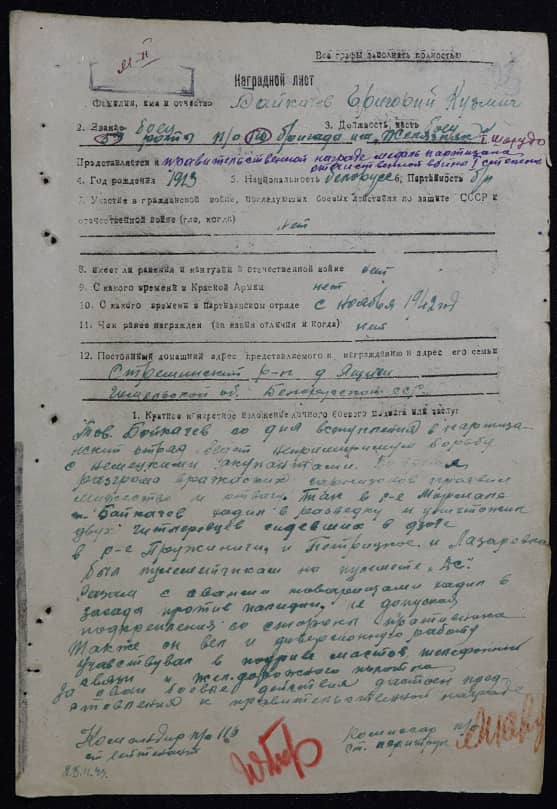 Все графы заполнять полностью
Наградной лист
1. Фамилия, имя и отчество Байкачев Григорий Кузьмич
2. Звание боец 3. Должность, часть боец
роты п/о бригада им. Железняк
Представляется к правительственной награде медаль партизана
отечественной войны I степени
4. Год рождения 1923 5. Национальность белорусс 6. Партийность б/п
7. Участие в гражданской войне, последующих боевых действиях по защите СССР и
отечественной войне (где, когда)
нет
8. Имеет ли ранения и контузии в отечественной войне нет
9. С какого времени в Красной Армии нет
10. С какого времени в Партизанском отряде с ноября 1942 год
11. Чем ранее награжден (за какие отличия и когда) нет
12. Постоянный домашний адрес представляемого к награждению и адрес его семьи
Стрешинский р-н д. Ящицы
Гомельской об. Белорусской ССР.
1. Краткое конкретное изложение личного боевого подвига или заслуг
Тов. Байкачев со дня вступления в партиза-
нский отряд ведет непримиримую борьбу
с немецкими окупантами.
разгрома вражеских гарнизонов проявил
мужество и отвагу. Так в р-не
т. Байкачов ходил в разведку и уничтожил
двух гитлеровцев сидевших в дзоте
в р-не Пружиничи, и и Лазаровка
был пулеметчиком на пулемете "ДС".
Разом с своими товарищами ходил в
засада против полиции, не допуская
подкрепления со стороны противника
Также он вел и диверсионную работу
участвувал в подриве мастов, телефонной
связи и жел. дорожного полотна
За свои боевые действия достоен пред-
ставления к правительственной награде
Командир п/о 113 Комиссар п/о
ст. лейтенант ст. политрук